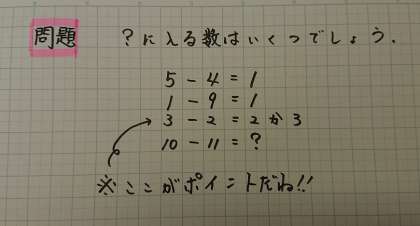 問題 ?に入る数はいくつでしょう.
5 - 4 = 1
1 - 9 = 1
3 - 2 = 2 か 3
10 - 11 = ?
※ここがポイントだね!!